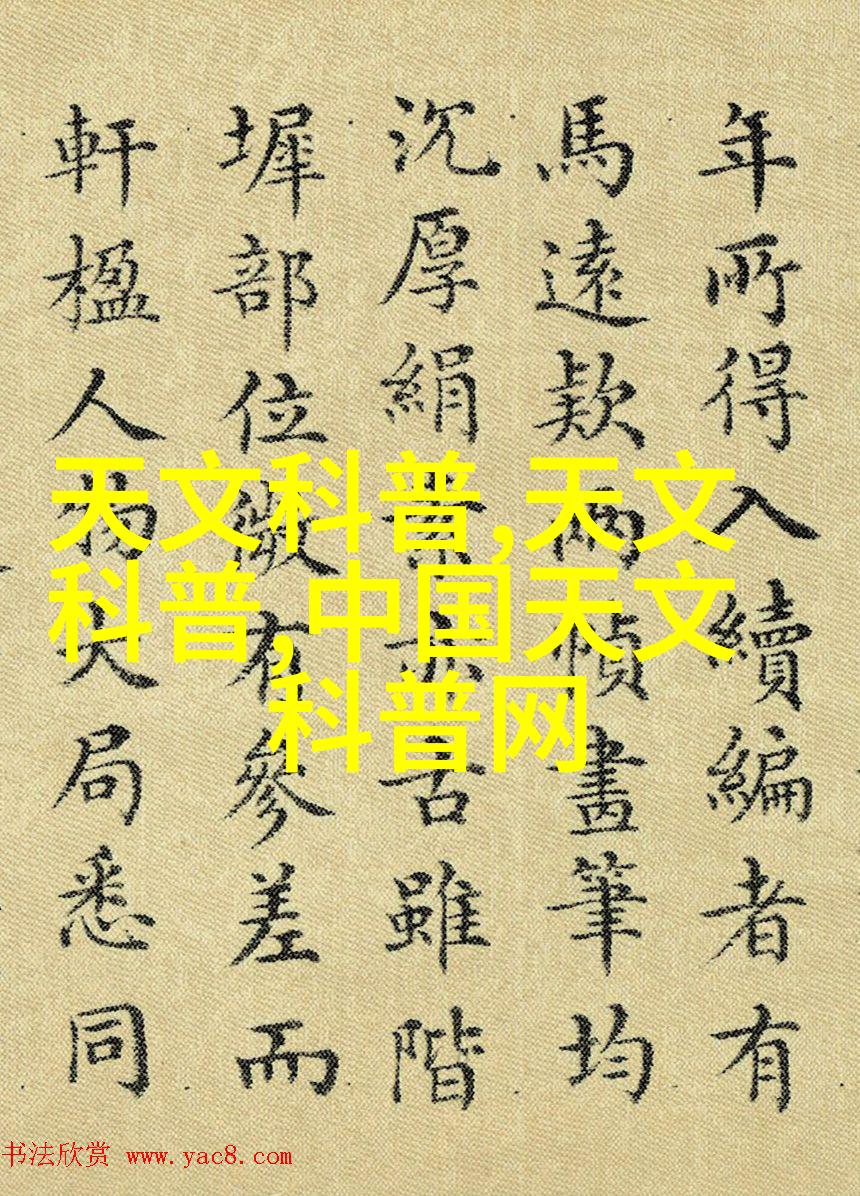 年所得入續編者有
馬遠欵兩幀畫筆均
沉厚絹素亦古雖階
墀部位微有參差而
軒楹人物大局悉同
天文科普,天文
科普,中国天文
科普网
书法欣赏 www.yac8.com